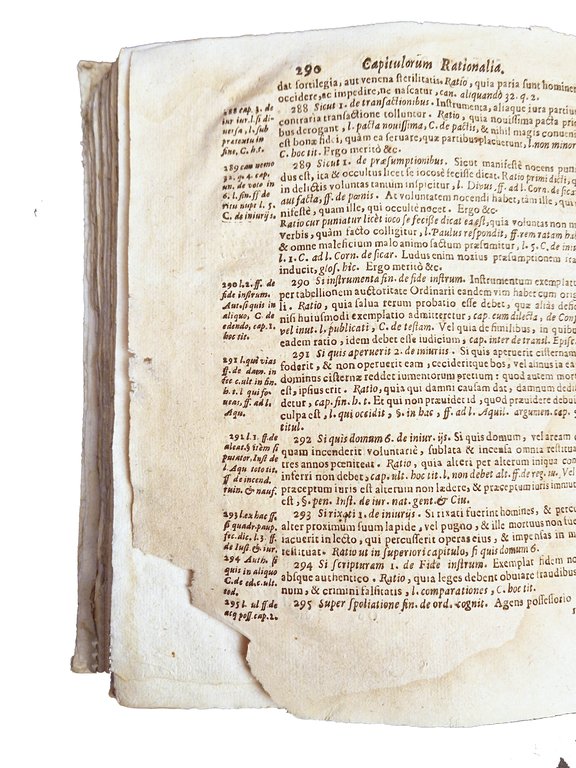 290 Capitulorum Rationalia.
dat sortilegia, aut venena sterilitatis. Ratio, quia paria sunt hominem
occidere, ac impedire, ne nascatur, can. aliquando 32. q. 2.
288 Sicut 1. de transactionibus. Instrumenta, aliaque iura partium
contraria transactione tolluntur. Ratio, quia nouissima pacta priori
bus derogant, l. pacta nouissima, C. de pactis, & nihil magis conueniens
est bonæ fidei, quàm ea seruare, quæ partibus placuerunt, l. non minorem
C. hoc tit. Ergo meritò &c.
289 Sicut 1. de præsumptionibus. Sicut manifestè nocens
dus est, ita & occultus licet se iocosè fecisse dicat. Ratio primi dicti,
in delictis voluntas tantùm inspicitur, l. Diuus ff. ad l. Corn. de sicar.
aus facta, ff. de pœnis. At voluntatem nocendi habet, tàm ille, qui
nifestè, quàm ille, qui occultè nocet. Ergo &c.
Ratio cur puniatur licèt ioco se fecisse dicat ea est, quia voluntas non
verbis, quàm facto colligitur, l. Paulus respondit, ff. rem ratam
& omne maleficium malo animo factum præsumitur, l. 5. C. de
l. 1. C. ad l. Corn. de sicar. Ludus enim noxius præsumptionem
inducit, glos. hic. Ergo meritò &c.
290 Si instrumenta fin. de fide instrum. Instrumentum
per tabellionem auctoritate Ordinarii eandem vim habet cum
li. Ratio, quia salua rerum probatio esse debet, quæ aliàs
nisi huiusmodi exemplatio admitteretur, cap. cum dilecta, de
vel inut. l. publicati, C. de testam. Vel quia de similibus, in
eadem ratio, idem debet esse iudicium, cap. inter de transl. Episc.
291 Si quis aperuerit 2. de iniuriis. Si quis aperuerit cisternam
foderit, & non operuerit eam, cecideritque bos, vel asinus in
dominus cisternæ reddet iumentorum pretium: quod autem
est, ipsius erit. Ratio, quia qui damni causam dat, damnum
detur, cap. fin. h. t. Et qui non præuidet id, quod præuidere
culpa est, l. qui occidit, §. in hac, ff. ad l. Aquil. argumen. cap.
titul.
292 Si quis domum 6. de iniur. ijs. Si quis domum, vel aream
quam incenderit voluntariè, sublata & incensa omnia
tres annos pœniteat. Ratio, quia alteri per alterum iniqua
inferri non debet, cap. ult. hoc tit. l, non debet alt. ff. de reg. iu.
præceptum iuris est alterum non lædere, & præceptum iuris
est, §. pen. Inst. de iur. nat. gent. & Ciu.
293 Si rixati 1. de iniurijs. Si rixati fuerint homines, &
alter proximum suum lapide, vel pugno, & ille mortuus non
iacuerit in lecto, qui percusserit operas eius, & impensas in
restituat. Ratio ut in superiori capitulo, si quis domum 6.
294 Si scripturam 1. de Fide instrum. Exemplat fidem
absque authentico. Ratio, quia leges debent obuiare fraudibus
num, & crimini falsitatis, l. comparationes, C. hoc tit.
295 Super spoliatione fin. de ord. cognit. Agens possessorio
288 cap. 3. de
289 can homo
32. q. 4. cap.
un. de voto in
6. l. fin. ff de
ritu nupt l. 5.
C. de iniurijs.
290 l. 2. ff. de
fide instrum.
Aut. si quis in
aliquo, C. de
edendo, cap. 1.
hoc tit.
291 l. qui vias
ff. de dam. in
fec c. ult in fin.
h. t. l qui fo-
ueas, ff. ad l.
Aqu.
292 l. 1. ff. de
aleat. § item si
putator. Inst de
l. Aqu toto tit.
ff de incend.
ruin. & nauf.
293 l. ex hac ff.
si quadr. paup.
fec. dic. l. 3. ff.
de Iust & iur.
294 Auth. si
quis in aliquo
C. de ed. c. ult.
eod.
295 l. ul ff de
acq poss. cap. 2.